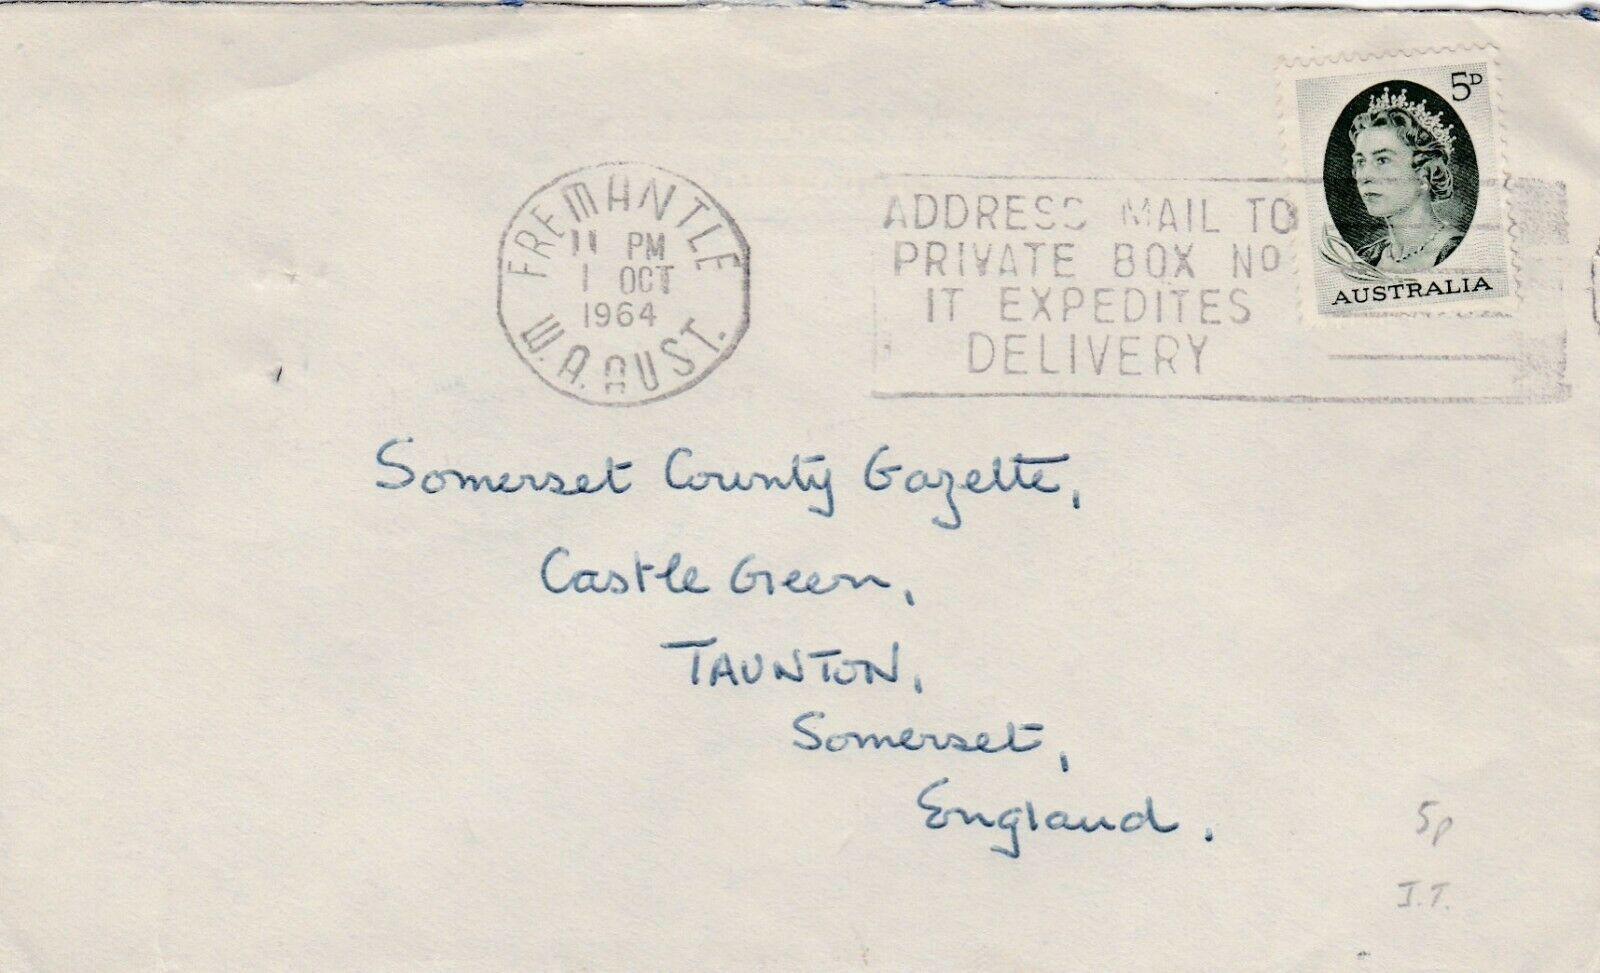 5D
AUSTRALIA
FREMANTLE
11 PM
1 OCT
1964
W.A. AUST.
ADDRESS MAIL TO
PRIVATE BOX NO
IT EXPEDITES
DELIVERY
Somerset County Gazette,
Castle Green,
TAUNTON,
Somerset,
England.
5p
I.T.